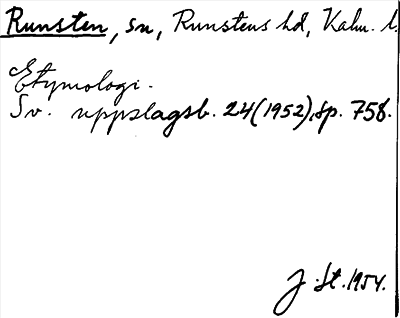 Runsten, sn, Runstens hd, Kalm. l.
Etymologi.
Sv. uppslagsb. 24(1952), sp. 758.
J. St. 1954.